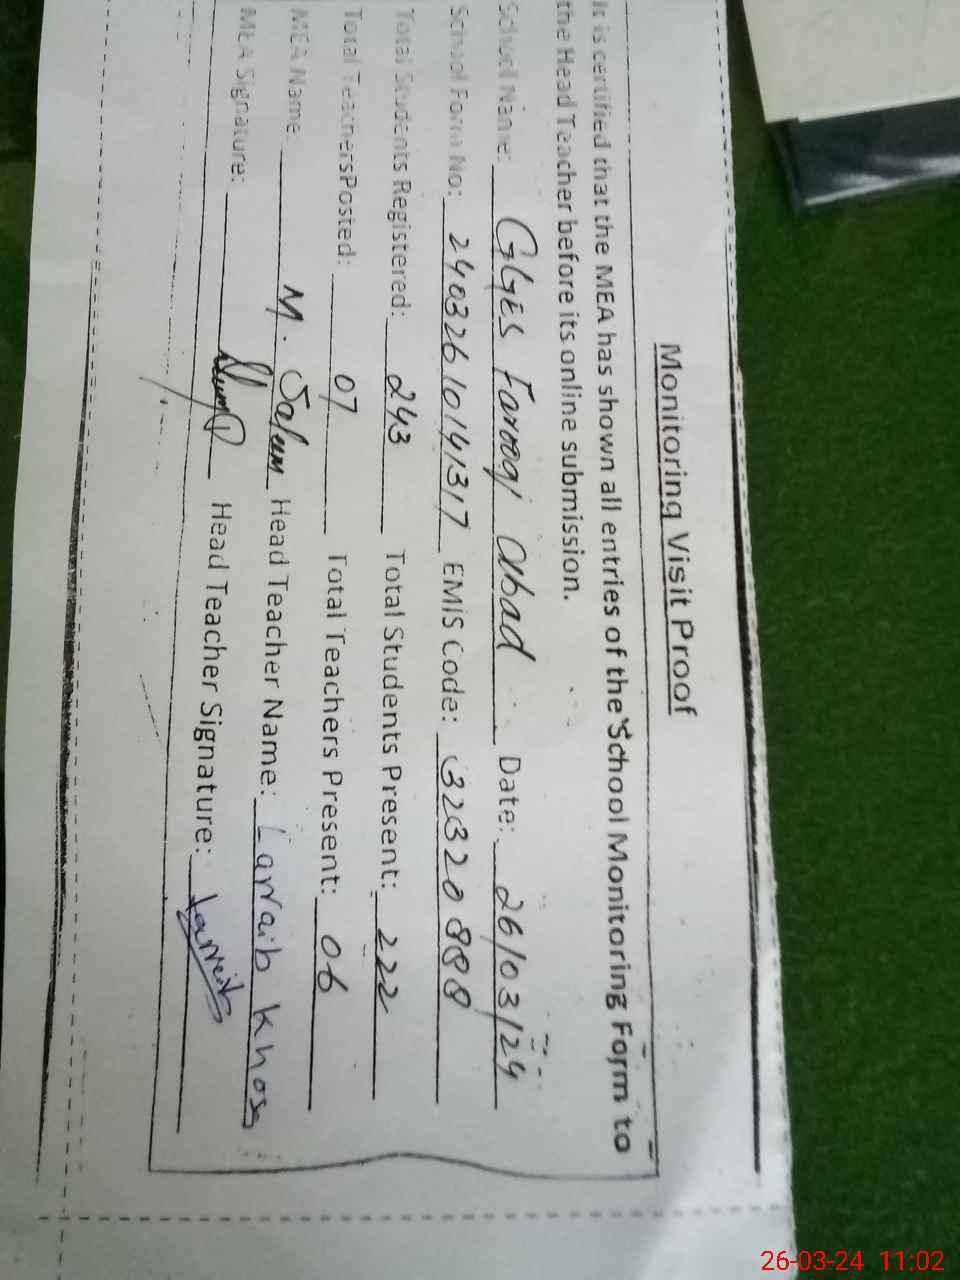 Monitoring Visit Proof
It is certified that the MEA has shown all entries of the School Monitoring Form to
the Head Teacher before its online submission.
School Name: GGES Farooqi abad Date: 26/03/24
School Form No: 2403261014317 EMIS Code: 32320888
Total Students Registered: 243 Total Students Present: 222
Total TeachersPosted: 07 Total Teachers Present: 06
MEA Name: M. Salum Head Teacher Name: Larraib Khosa
MEA Signature: Head Teacher Signature: Larraib
26-03-24 11:02